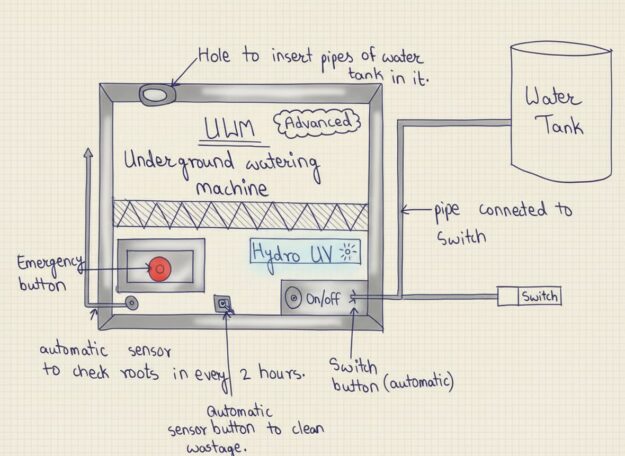 Hole to insert pipes of water
tank in it.
Water
Tank
UWM
Advanced
Underground watering
machine
pipe conneted to
Switch
Hydro UV
Emergency
button
On/off
Switch
automatic sensor
to check roots in every 2 hours.
Switch
button (automatic)
Automatic
sensor button to clean
wastage.